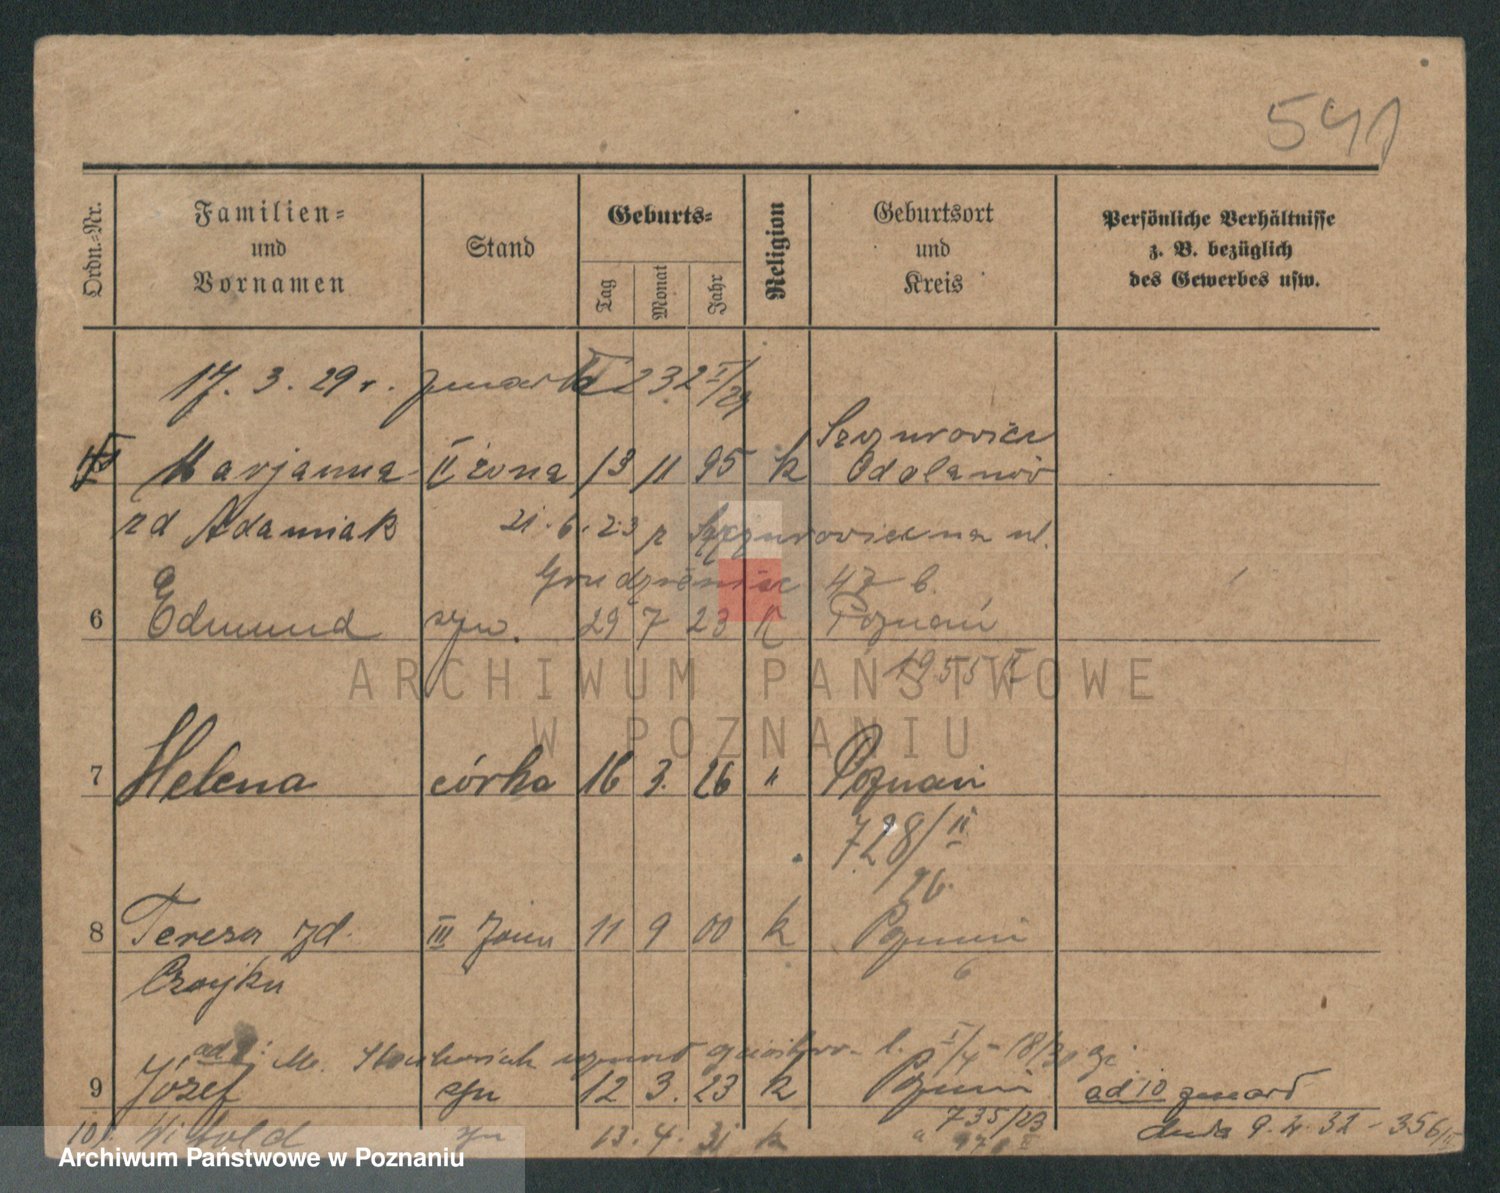 541
Ordn.-Nr.
Familien-
und
Vornamen
Stand
Geburts-
Tag
Monat
Jahr
Religion
Geburtsort
und
Kreis
Persönliche Verhältnisse
z. B. bezüglich
des Gewerbes usw.
17. 3. 29 r. zmarła 232 I/29
Marjanna II żona 13 11 95 k Odolanów
zd Adamiak 21. 6. 23 z
47 b.
6 Edmund syn. 29 7 23 k Poznań
1955 II
7 Helena córka 16 3. 26 " Poznań
728/II
26.
8 Teresa zd. III żona 11 9 00 k Poznań
6
Czajka
ad : M. uznał 18/30
9 Józef syn 12 3. 23 k Poznań ad 10 zmarł
735/23
10 Witold syn 13. 4. 31 k " dnia 9. 4. 32 - 356/II
ARCHIWUM PAŃSTWOWE
W POZNANIU
Archiwum Państwowe w Poznaniu